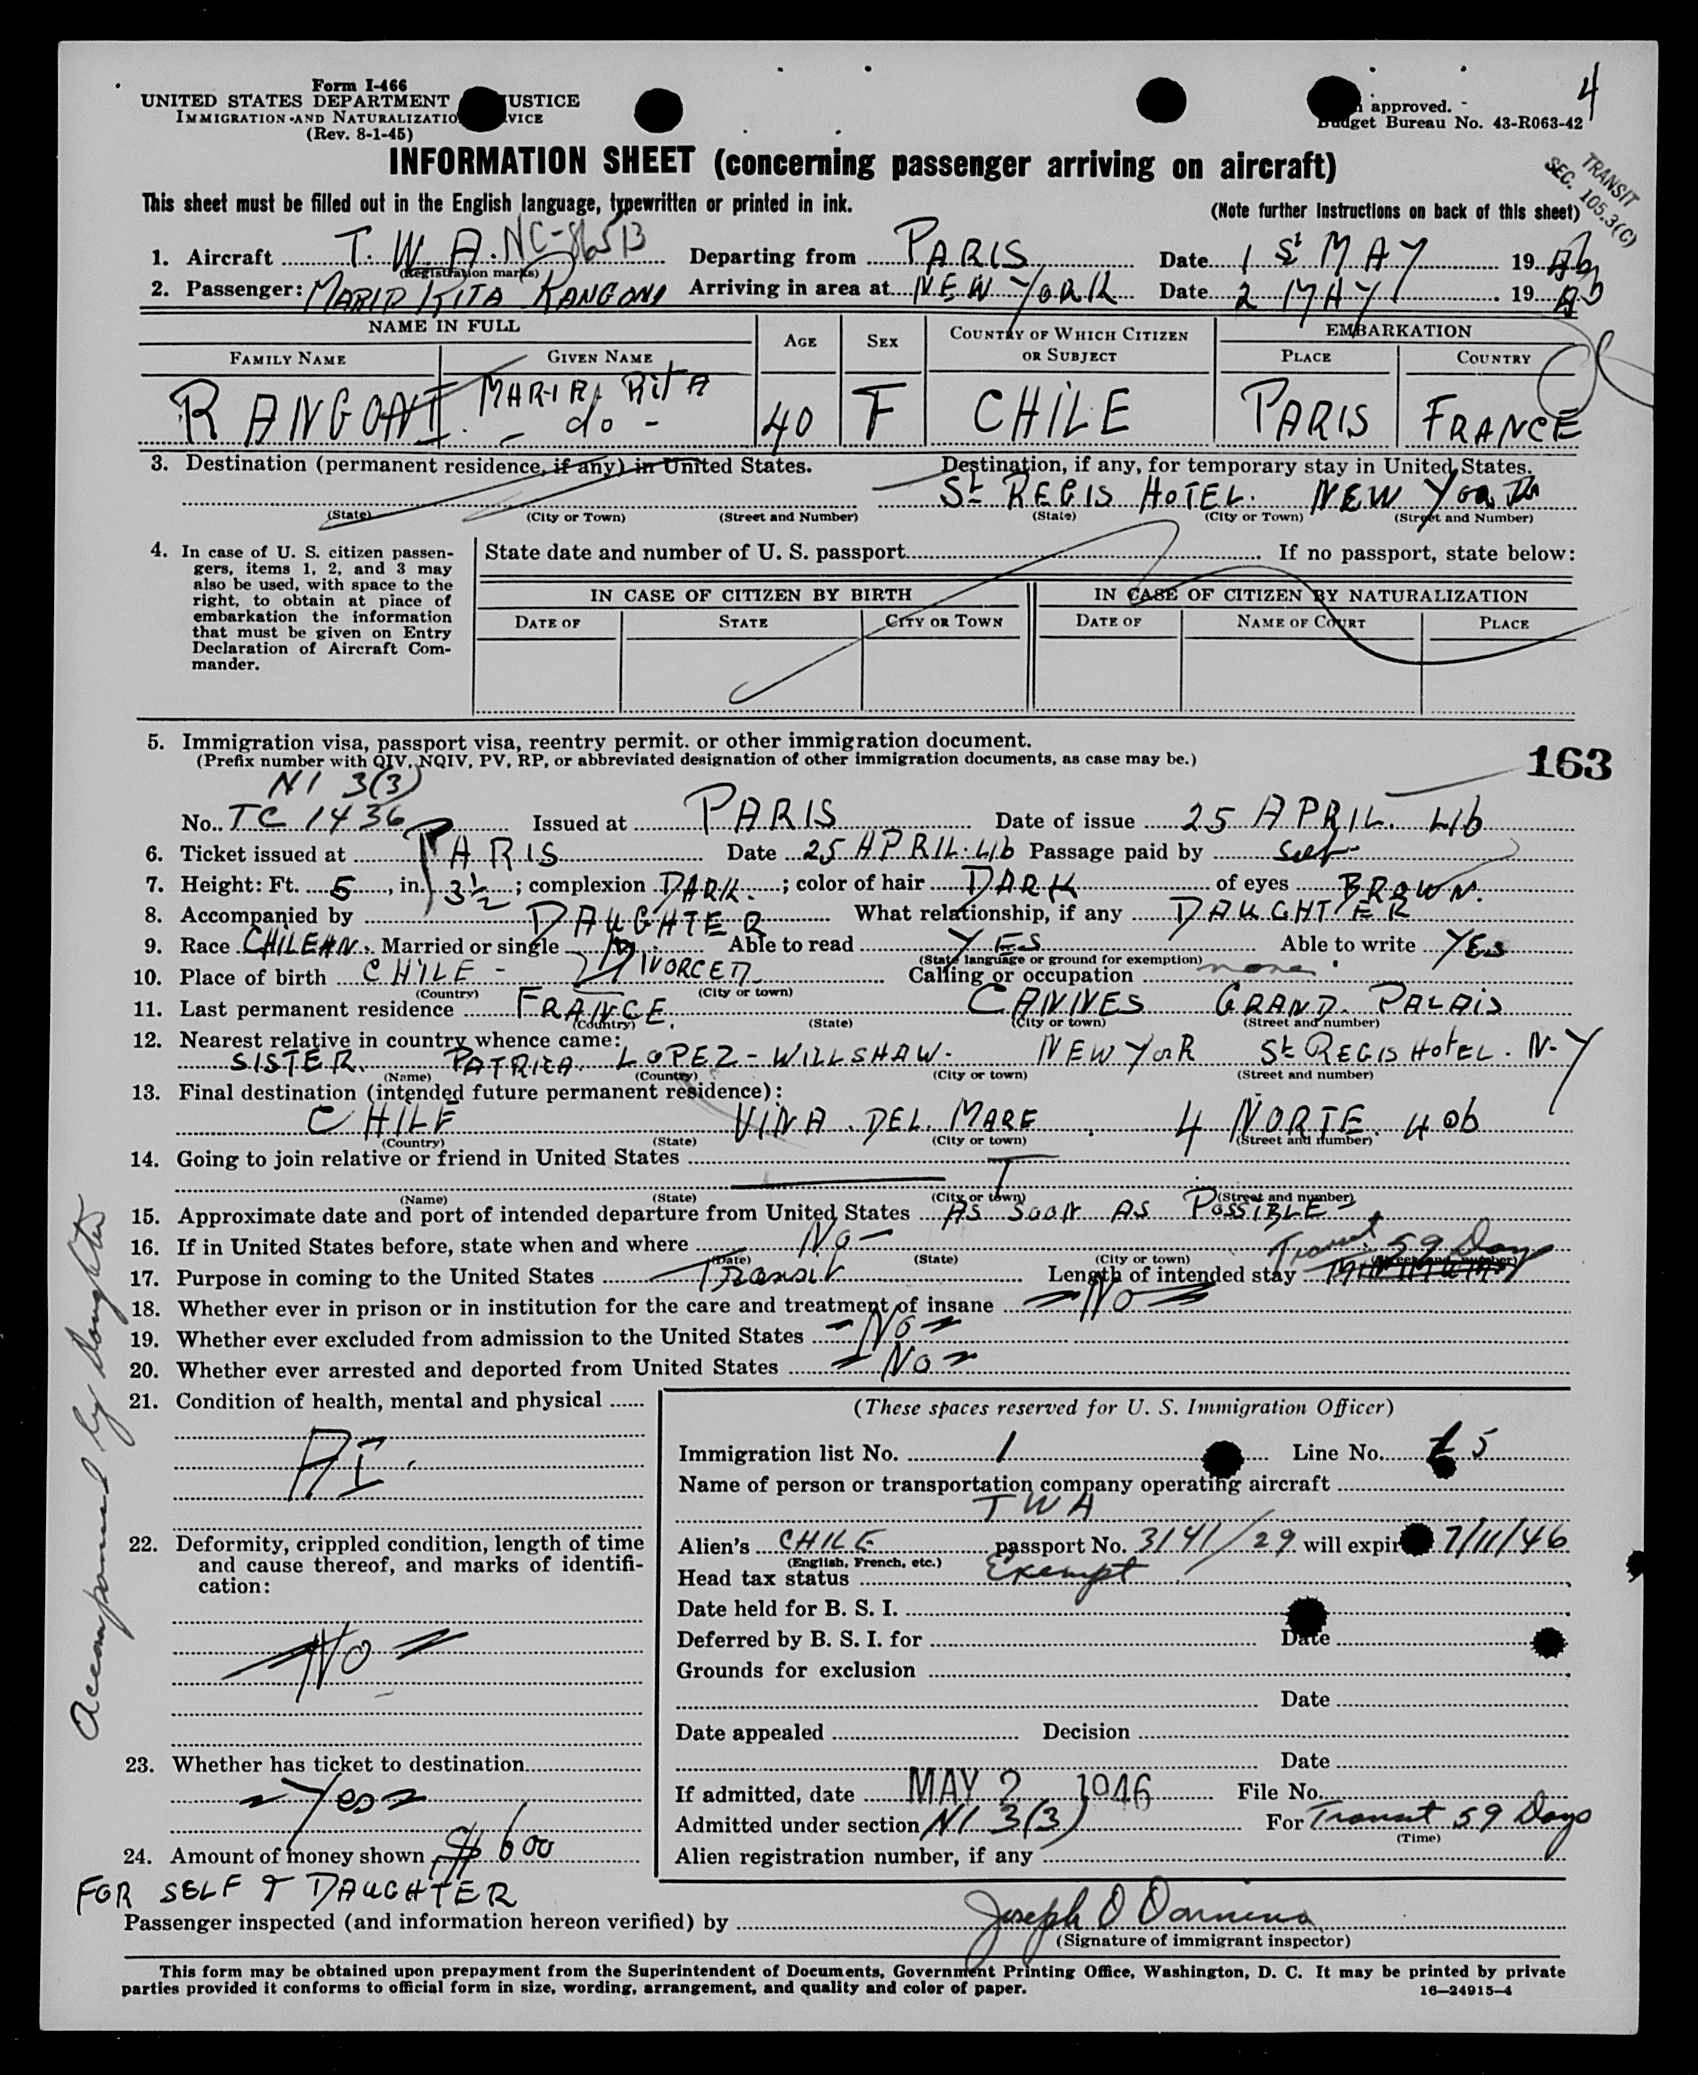 Form I-466
UNITED STATES DEPARTMENT USTICE
IMMIGRATION AND NATURALIZATIO VICE
(Rev. 8-1-45)
approved.
Budget Bureau No. 43-R063-42
4
TRANSIT
SEC. 105.3(C)
INFORMATION SHEET (concerning passenger arriving on aircraft)
This sheet must be filled out in the English language, typewritten or printed in ink.
(Note further instructions on back of this sheet)
1. Aircraft T. W. A. NC-86513 Departing from PARIS Date 1 St MAY 1946
(Registration marks)
2. Passenger: MARIA RITA RANGONI Arriving in area at NEW YORK Date 2 MAY 1946
NAME IN FULL AGE SEX COUNTRY OF WHICH CITIZEN OR SUBJECT EMBARKATION
FAMILY NAME GIVEN NAME PLACE COUNTRY
RANGONI MARIA RitA 40 F CHILE PARIS FRANCE
- do -
3. Destination (permanent residence, if any) in United States. Destination, if any, for temporary stay in United States.
St REGIS HOTEL. NEW York
(State) (City or Town) (Street and Number) (State) (City or Town) (Street and Number)
4. In case of U. S. citizen passengers, items 1, 2, and 3 may also be used, with space to the right, to obtain at place of embarkation the information that must be given on Entry Declaration of Aircraft Commander.
State date and number of U. S. passport If no passport, state below:
IN CASE OF CITIZEN BY BIRTH IN CASE OF CITIZEN BY NATURALIZATION
DATE OF STATE CITY OR TOWN DATE OF NAME OF COURT PLACE
5. Immigration visa, passport visa, reentry permit. or other immigration document.
(Prefix number with QIV, NQIV, PV, RP, or abbreviated designation of other immigration documents, as case may be.)
163
N1 3(3)
No. TC 1436 Issued at PARIS Date of issue 25 APRIL. 46
6. Ticket issued at PARIS Date 25 APRIL. 46 Passage paid by self
7. Height: Ft. 5, in. 3½; complexion DARK.; color of hair DARK of eyes BROWN.
8. Accompanied by DAUGHTER What relationship, if any DAUGHTER
9. Race CHILEAN. Married or single Able to read YES Able to write YES
(State language or ground for exemption)
10. Place of birth CHILE - DIVORCED Calling or occupation none
(Country) (City or town)
11. Last permanent residence FRANCE. CANNES GRAND. PALAIS
(Country) (State) (City or town) (Street and number)
12. Nearest relative in country whence came:
SISTER. PATRICA. LOPEZ-WILLSHAW. NEW YORK St REGIS HOTEL. N-Y
(Name) (Country) (City or town) (Street and number)
13. Final destination (intended future permanent residence):
CHILE VINA. DEL. MARE. 4 NORTE. 406
(Country) (State) (City or town) (Street and number)
14. Going to join relative or friend in United States
(Name) (State) (City or town) (Street and number)
15. Approximate date and port of intended departure from United States AS SOON AS POSSIBLE
16. If in United States before, state when and where No
(Date) (State) (City or town) (Street and number)
17. Purpose in coming to the United States Transit Length of intended stay Transit 59 Day
18. Whether ever in prison or in institution for the care and treatment of insane No
19. Whether ever excluded from admission to the United States No
20. Whether ever arrested and deported from United States No
21. Condition of health, mental and physical
AI.
22. Deformity, crippled condition, length of time and cause thereof, and marks of identification:
No
23. Whether has ticket to destination
Yes
24. Amount of money shown $600
FOR SELF & DAUGHTER
Accompanied by daughter
(These spaces reserved for U. S. Immigration Officer)
Immigration list No. 1 Line No. 5
Name of person or transportation company operating aircraft
TWA
Alien's CHILE passport No. 3141/29 will expire 7/11/46
(English, French, etc.)
Head tax status Exempt
Date held for B. S. I.
Deferred by B. S. I. for Date
Grounds for exclusion
Date
Date appealed Decision
Date
If admitted, date MAY 2 1946 File No.
Admitted under section N1 3(3) For Transit 59 Days
(Time)
Alien registration number, if any
Passenger inspected (and information hereon verified) by Joseph O
(Signature of immigrant inspector)
This form may be obtained upon prepayment from the Superintendent of Documents, Government Printing Office, Washington, D. C. It may be printed by private
parties provided it conforms to official form in size, wording, arrangement, and quality and color of paper.
16—24915-4